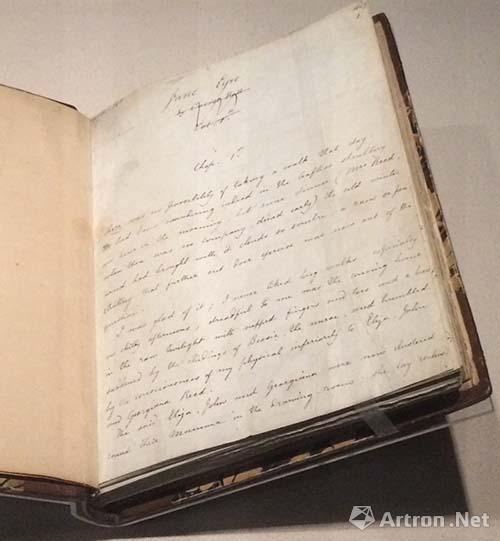 Jane Eyre
Vol. 1st
Chap. 1st
There was no possibility of taking a walk that day.
We had been wandering indeed in the leafless shrubbery
an hour in the morning, but since dinner (Mrs Reed,
when there was no company, dined early) the cold winter
wind had brought with it clouds so sombre, a rain so pene-
trating that further out door exercise was now out of the
question.
I was glad of it; I never liked long walks especially
on chilly afternoons; dreadful to me was the coming home
in the raw twilight with nipped fingers and toes and a heart
saddened by the chidings of Bessie the nurse, and humbled
by the consciousness of my physical inferiority to Eliza, John
and Georgiana Reed.
The said Eliza, John and Georgiana were now clustered
round their Mamma in the drawing-room: she lay reclin-
Artron.Net